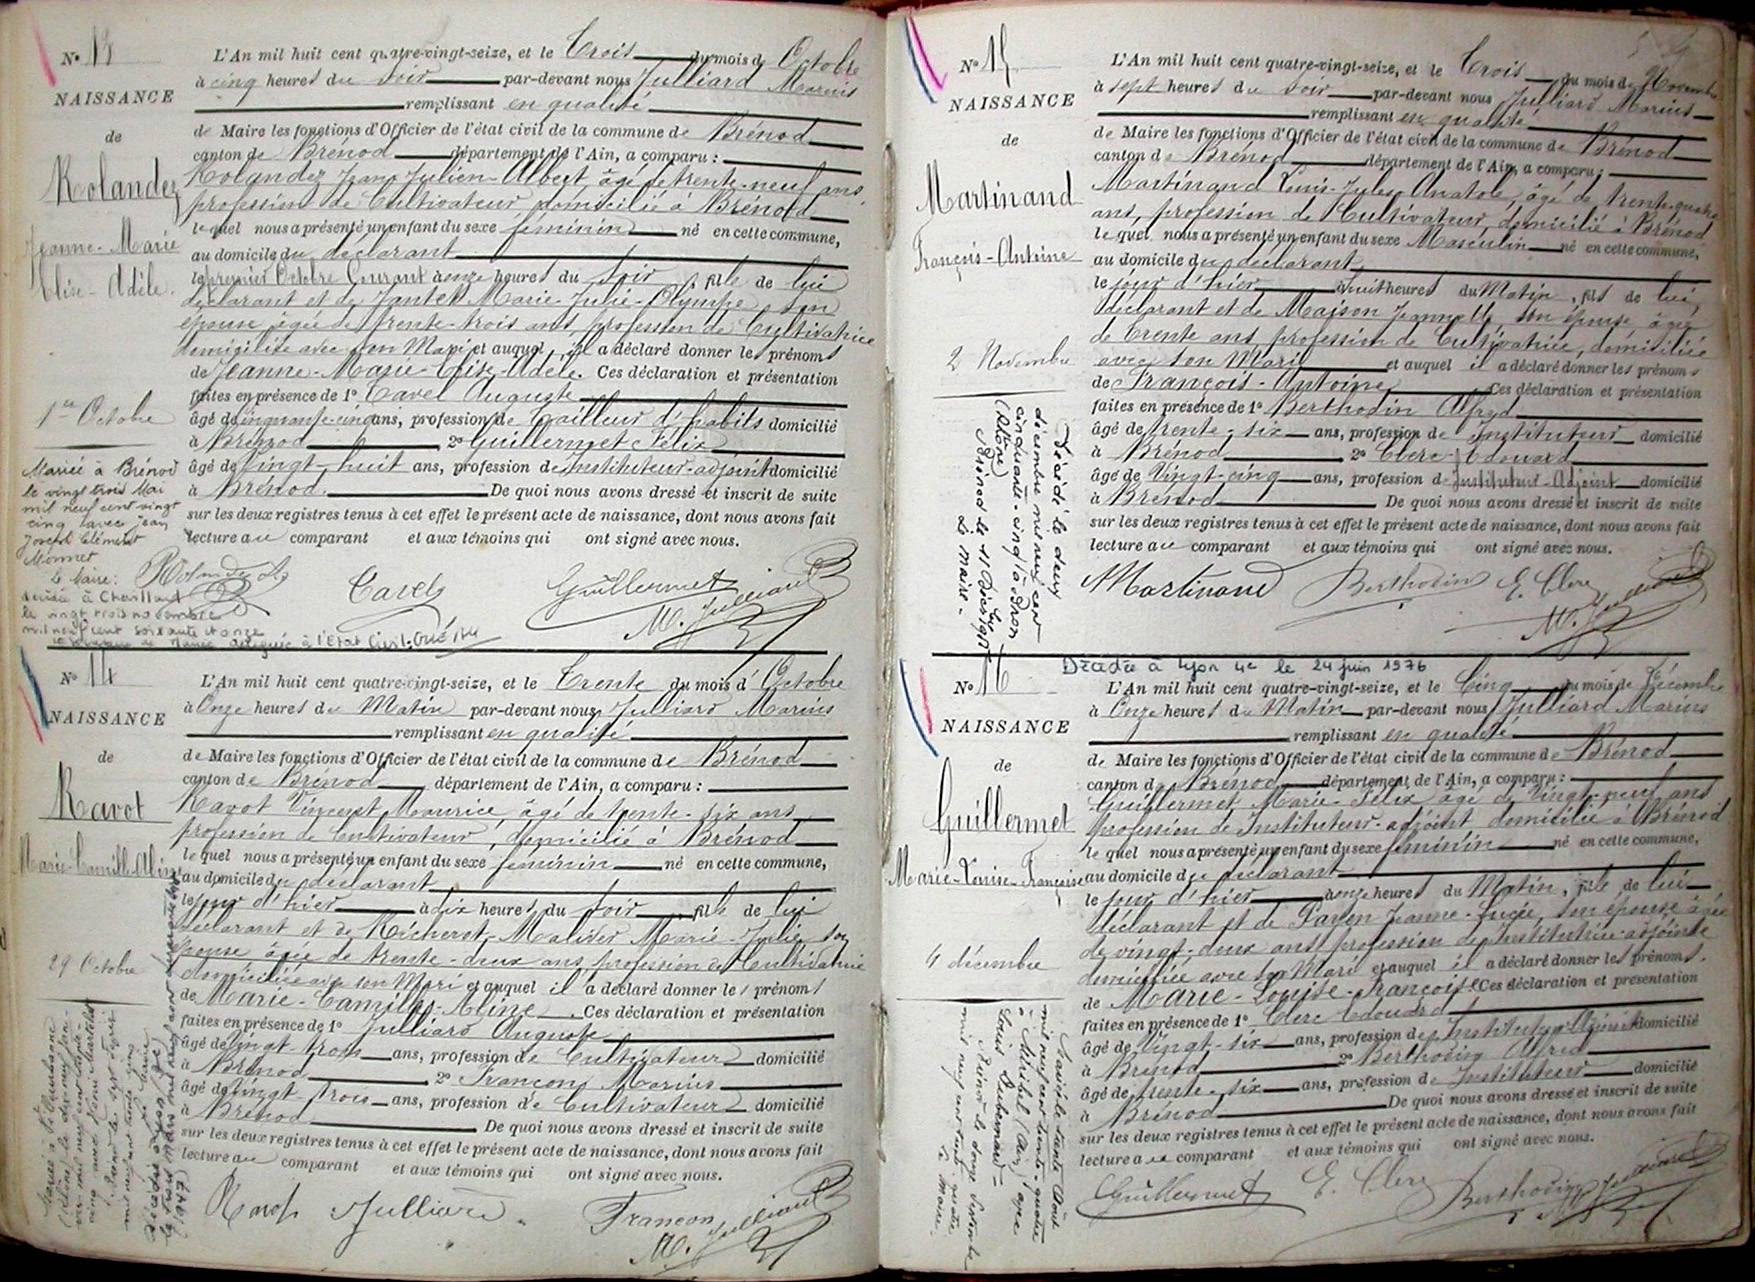 No 13
NAISSANCE
de
Rolandez
Jeanne-Marie
Élise-Adèle.
1er Octobre
Mariée à Brénod
le vingt trois Mai
mil neuf cent vingt
cinq avec Jean
Joseph Clément
Monnet
Le Maire:
L'An mil huit cent quatre-vingt-seize, et le Trois du mois d'Octobre
à cinq heures du soir par-devant nous Julliard Marius
remplissant en qualité
de Maire les fonctions d'Officier de l'état civil de la commune de Brénod
canton de Brénod département de l'Ain, a comparu :
Rolandez Julien-Albert âgé de trente-neuf ans,
profession de Cultivateur domicilié à Brénod
lequel nous a présenté un enfant du sexe féminin né en cette commune,
au domicile du déclarant
le premier Octobre Courant à onze heures du soir, fille de lui
déclarant et de Marie-Julie-Olympe son
épouse âgée de trente-trois ans, profession de Cultivatrice
domiciliée avec son Mari et auquel il a déclaré donner les prénoms
de Jeanne-Marie-Élise-Adèle. Ces déclaration et présentation
faites en présence de 1o Tavel Auguste
âgé de cinquante-cinq ans, profession de Tailleur d'habits domicilié
à Brénod 2o Guillermet Félix
âgé de vingt-huit ans, profession de Instituteur-adjoint domicilié
à Brénod. De quoi nous avons dressé et inscrit de suite
sur les deux registres tenus à cet effet le présent acte de naissance, dont nous avons fait
lecture au comparant et aux témoins qui ont signé avec nous.
Tavel Guillermet M. Julliard
le vingt trois novembre
mil neuf cent soixante et onze
No 14
NAISSANCE
de
Ravot
Marie-Camille-Aline
29 Octobre
L'An mil huit cent quatre-vingt-seize, et le Trente du mois d'Octobre
à Onze heures du Matin par-devant nous Julliard Marius
remplissant en qualité
de Maire les fonctions d'Officier de l'état civil de la commune de Brénod
canton de Brénod département de l'Ain, a comparu :
Ravot Vincent Maurice, âgé de trente-six ans
profession de Cultivateur, domicilié à Brénod
lequel nous a présenté un enfant du sexe féminin né en cette commune,
au domicile du déclarant
le jour d'hier à dix heures du soir, fille de lui
déclarant et de Marie-Julie son
épouse âgée de trente-deux ans, profession de Cultivatrice
domiciliée avec son Mari et auquel il a déclaré donner les prénoms
de Marie-Camille-Aline. Ces déclaration et présentation
faites en présence de 1o Julliard Auguste
âgé de vingt-trois ans, profession de Cultivateur domicilié
à Brénod 2o Françon Marius
âgé de vingt-trois ans, profession de Cultivateur domicilié
à Brénod De quoi nous avons dressé et inscrit de suite
sur les deux registres tenus à cet effet le présent acte de naissance, dont nous avons fait
lecture au comparant et aux témoins qui ont signé avec nous.
Ravot Julliard Françon M. Julliard
No 15
NAISSANCE
de
Martinand
François-Antoine
2 Novembre
Décédé le deux
décembre mil neuf cent
cinquante-cinq à Oron
(Rhône)
Le Maire
L'An mil huit cent quatre-vingt-seize, et le Trois du mois de Novembre
à sept heures du soir par-devant nous Julliard Marius
remplissant en qualité
de Maire les fonctions d'Officier de l'état civil de la commune de Brénod
canton de Brénod département de l'Ain, a comparu :
Martinand Louis-Jules-Anatole, âgé de trente-quatre
ans, profession de Cultivateur, domicilié à Brénod
lequel nous a présenté un enfant du sexe Masculin né en cette commune,
au domicile du déclarant
le jour d'hier à huit heures du Matin, fils de lui,
déclarant et de Maison Jeannette son épouse âgée
de trente ans, profession de Cultivatrice, domiciliée
avec son Mari et auquel il a déclaré donner les prénoms
de François-Antoine Ces déclaration et présentation
faites en présence de 1o Berthodin Alfred
âgé de trente-six ans, profession de Instituteur domicilié
à Brénod 2o Clerc Edouard
âgé de Vingt-cinq ans, profession de Instituteur-Adjoint domicilié
à Brénod De quoi nous avons dressé et inscrit de suite
sur les deux registres tenus à cet effet le présent acte de naissance, dont nous avons fait
lecture au comparant et aux témoins qui ont signé avec nous.
Martinand Berthodin E. Clerc
M. Julliard
Décédée à Lyon 4e le 24 juin 1976
No 16
NAISSANCE
de
Guillermet
Marie-Louise-Françoise
4 décembre
Mariée le trente Août
mil neuf cent trente-quatre
à Miribel (Ain) avec
Louis Dubernard
Brénod le douze Septembre
mil neuf cent trente quatre
Le Maire.
L'An mil huit cent quatre-vingt-seize, et le Cinq du mois de Décembre
à Onze heures du Matin par-devant nous Julliard Marius
remplissant en qualité
de Maire les fonctions d'Officier de l'état civil de la commune de Brénod
canton de Brénod département de l'Ain, a comparu :
Guillermet Marie-Félix âgé de Vingt-neuf ans
profession de Instituteur-adjoint domicilié à Brénod
lequel nous a présenté un enfant du sexe féminin né en cette commune,
au domicile du déclarant
le jour d'hier à onze heures du Matin, fille de lui
déclarant et de Jeanne-Lucie, son épouse âgée
de vingt-deux ans, profession de Institutrice-adjointe
domiciliée avec son Mari et auquel il a déclaré donner les prénoms
de Marie-Louise-Françoise Ces déclaration et présentation
faites en présence de 1o Clerc Edouard
âgé de Vingt-six ans, profession de Instituteur-Adjoint domicilié
à Brénod 2o Berthodin Alfred
âgé de trente-six ans, profession de Instituteur domicilié
à Brénod De quoi nous avons dressé et inscrit de suite
sur les deux registres tenus à cet effet le présent acte de naissance, dont nous avons fait
lecture au comparant et aux témoins qui ont signé avec nous.
Guillermet E. Clerc Berthodin M. Julliard